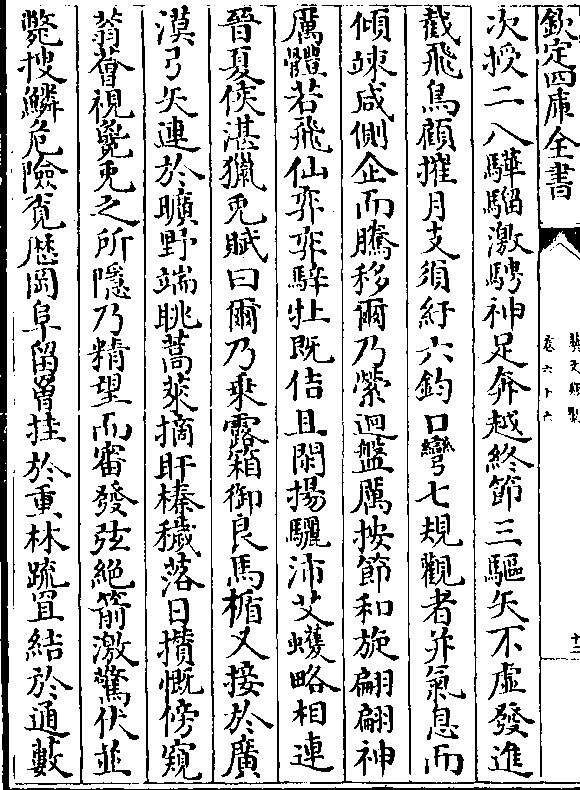 欽定四庫全書
卷六十六
十三
次授二八驊騮激騁神足奔越終節三驅矢不虛發進
截飛鳥顧摧月支須紆六鈞口彎七規觀者并氣息而
傾竦咸側企而騰移爾乃縈迴盤厲按節和旋翩翩神
厲體若飛仙弈弈騂牡既佶且閑揚驪沛艾蠖略相連
晉夏侯湛獵兎賦曰爾乃乘露箱御良馬楯又接於廣
漠弓矢連於曠野端眺蒿萊摘盱榛穢落日攅慨傍窺
蓊薈視㝹兎之所隱乃精望而審發弦絶箭激驚伏並
斃搜鱗危險覔歴岡阜留罥挂於重林疏罝結於通藪